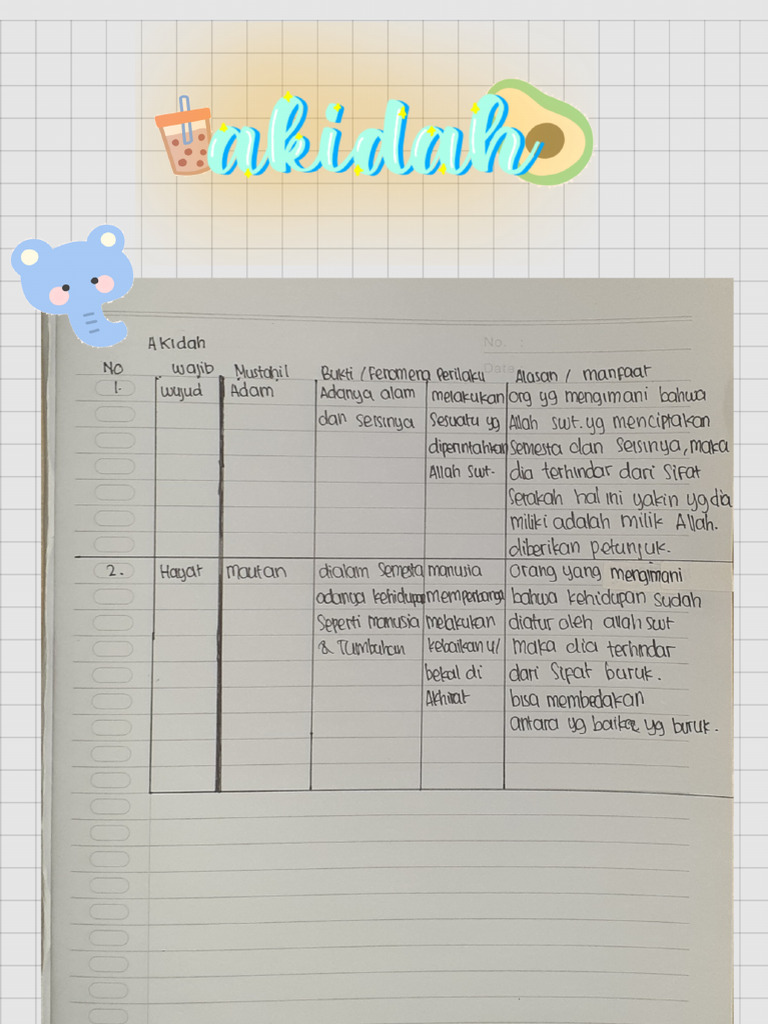 akidah
Akidah
No. :
Date
No wajib Mustahil Bukti / Feromena Perilaku Alasan / manfaat
1. wujud Adam Adanya alam melakukan org yg mengimani bahwa
dan seisinya Sesuatu yg Allah swt. yg menciptakan
diperintahkan Semesta dan seisinya, maka
Allah swt. dia terhindar dari Sifat
Serakah hal ini yakin yg dia
miliki adalah milik Allah.
diberikan petunjuk.
2. Hayat Mautan dialam Semesta manusia Orang yang mengimani
adanya kehidupan bahwa kehidupan sudah
Seperti manusia melakukan diatur oleh allah swt
& Tumbuhan kebaikan u/ maka dia terhindar
bekal di dari Sifat buruk.
Akhirat bisa membedakan
antara yg baik & yg buruk.